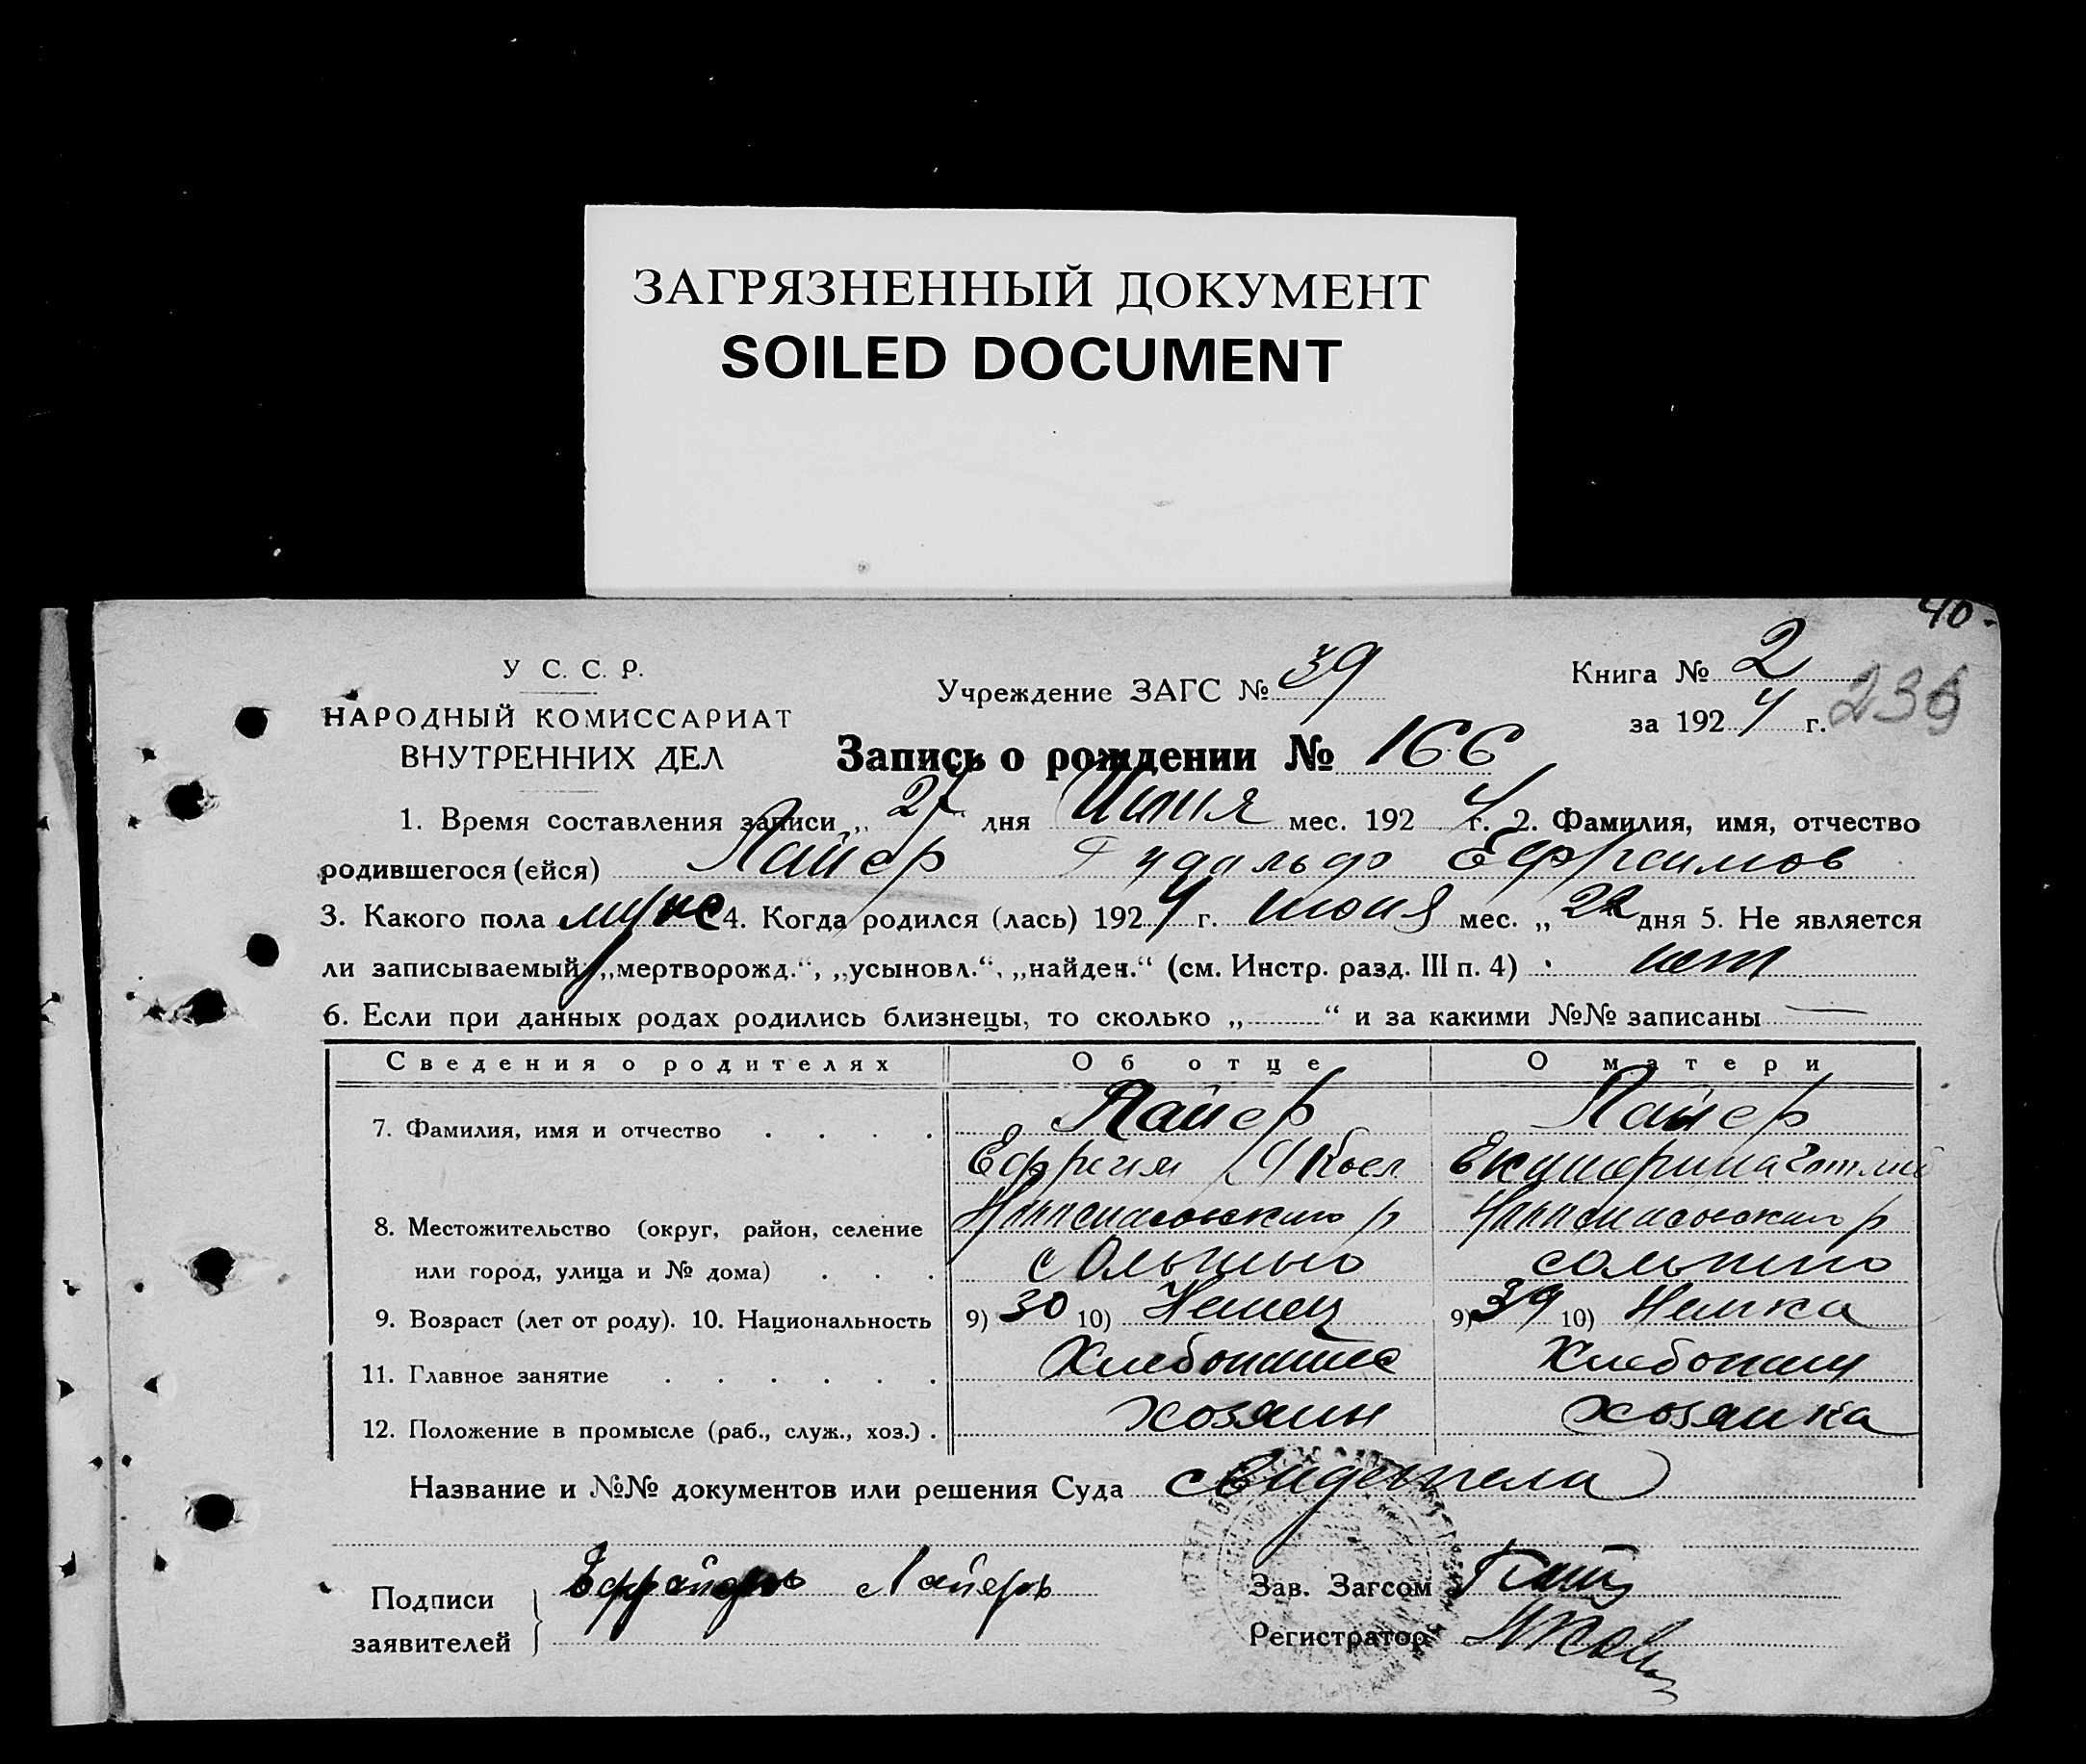 ЗАГРЯЗНЕННЫЙ ДОКУМЕНТ
SOILED DOCUMENT
40.
У С. С. Р.
НАРОДНЫЙ КОМИССАРИАТ
ВНУТРЕННИХ ДЕЛ
Учреждение ЗАГС № 39
Книга № 2
за 1924 г.
Запись о рождении № 166
1. Время составления записи „ 27 дня Июня мес. 1924 г. 2. Фамилия, имя, отчество
родившегося (ейся) Лайер Ефраимов
3. Какого пола муж 4. Когда родился (лась) 1924 г. июня мес. „ 22 дня 5. Не является
ли записываемый „мертворожд.“, „усыновл.“, „найден.“ (см. Инстр. разд. III п. 4) нет
6. Если при данных родах родились близнецы, то сколько „ “ и за какими №№ записаны —
Сведения о родителях Об отце О матери
7. Фамилия, имя и отчество Лайер Лайер
Ефраим Екатерина
8. Местожительство (округ, район, селение р р
или город, улица и № дома) с
9. Возраст (лет от роду). 10. Национальность 9) 30 10) Немец 9) 39 10) Немка
11. Главное занятие Хлебопашес Хлебопаш
12. Положение в промысле (раб., служ., хоз.) хозяин хозяика
Название и №№ документов или решения Суда свидетели
Подписи
заявителей
Лайеръ
Зав. Загсом
Регистратор